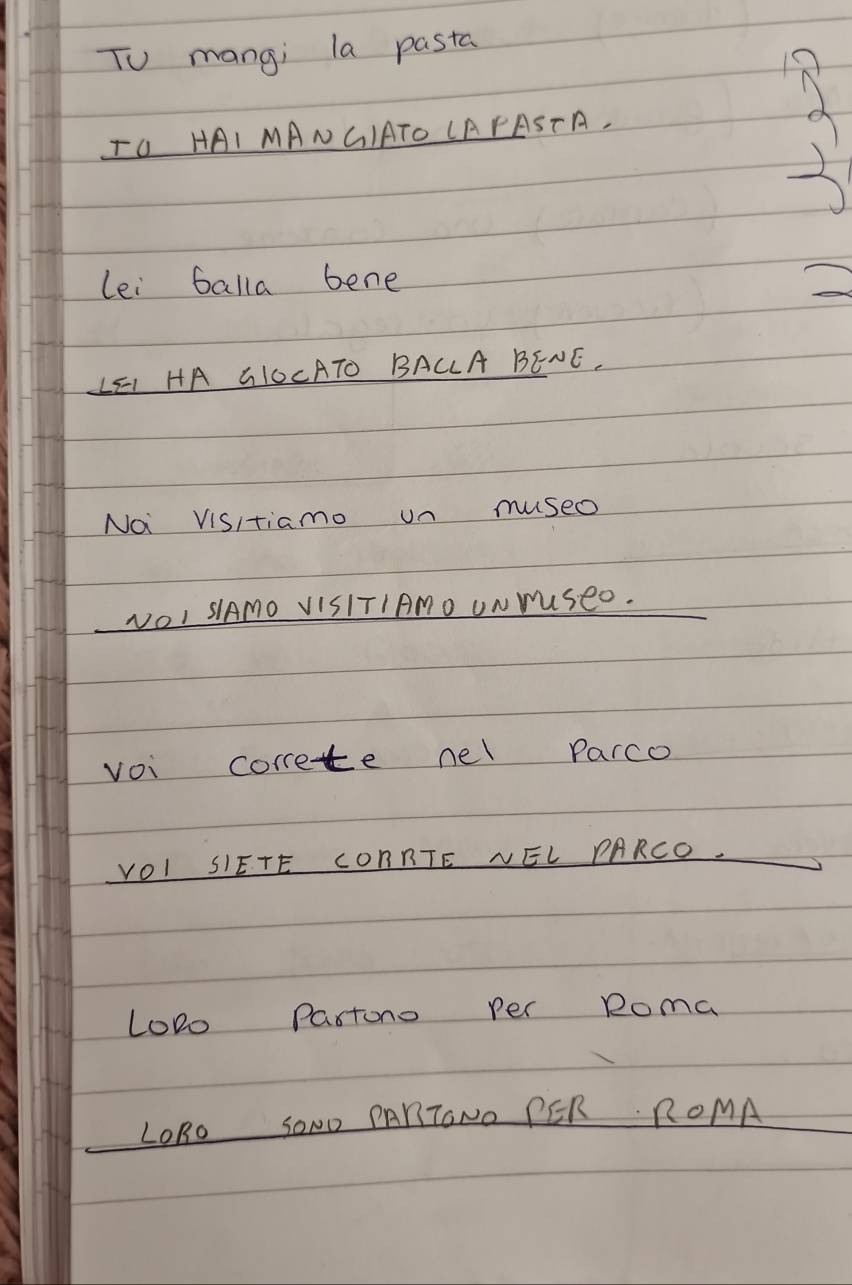 Tu mangi la pasta
TU HAI MANGIATO LA PASTA.
Lei balla bene
LEI HA GIOCATO BALLA BENE.
Noi visitiamo un museo
NOI SIAMO VISITIAMO UN museo.
Voi correte nel Parco
VOI SIETE CORRTE NEL PARCO.
Loro Partono Per Roma
LORO SONO PARTONO PER ROMA